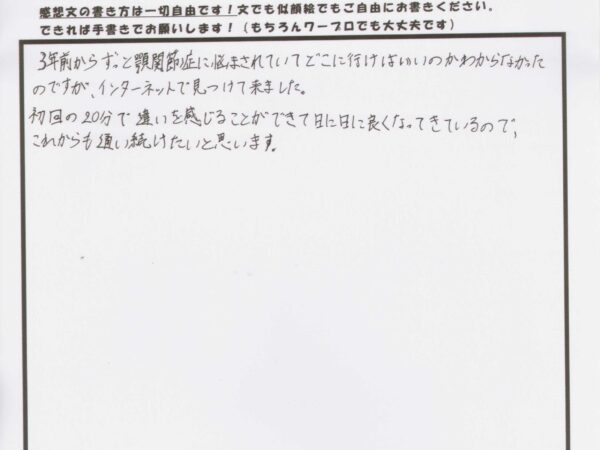 感想文の書き方は一切自由です！文でも似顔絵でもご自由にお書きください。
できれば手書きでお願いします！（もちろんワープロでも大丈夫です）
3年前からずっと顎関節症に悩まされていてどこに行けばいいのかわからなかった
のですが、インターネットで見つけて来ました。
初回の20分で違いを感じることができて日に日に良くなってきているので、
これからも通い続けたいと思います。